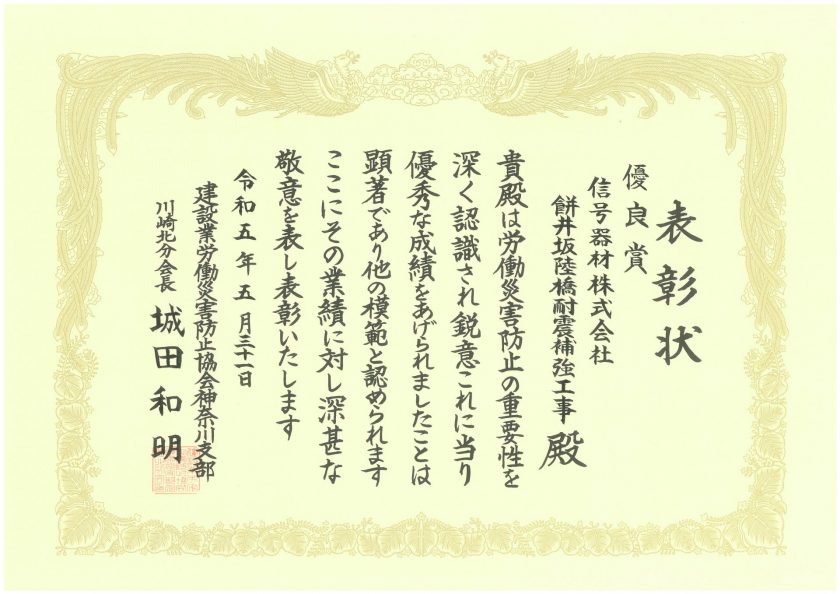 表彰状
優良賞
信号器材株式会社
餅井坂陸橋耐震補強工事
殿
貴殿は労働災害防止の重要性を
深く認識され鋭意これに当り
優秀な成績をあげられましたことは
顕著であり他の模範と認められます
ここにその業績に対し深甚な
敬意を表し表彰いたします
令和五年五月三十一日
建設業労働災害防止協会神奈川支部
川崎北分会長 城田和明